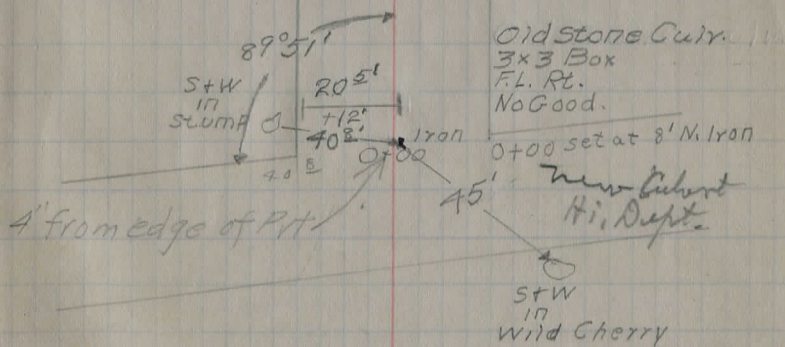 89°51'
S+W
in
stump
20 5'
+12'
40 8'
Iron
0+00
4.0 8
4' from edge of Pvt
45'
S+W
in
Wild Cherry
Old Stone Culv.
3x3 Box
F.L. Rt.
No Good.
0+00 set at 8' N. Iron
New Culvert
Hi. Dept.